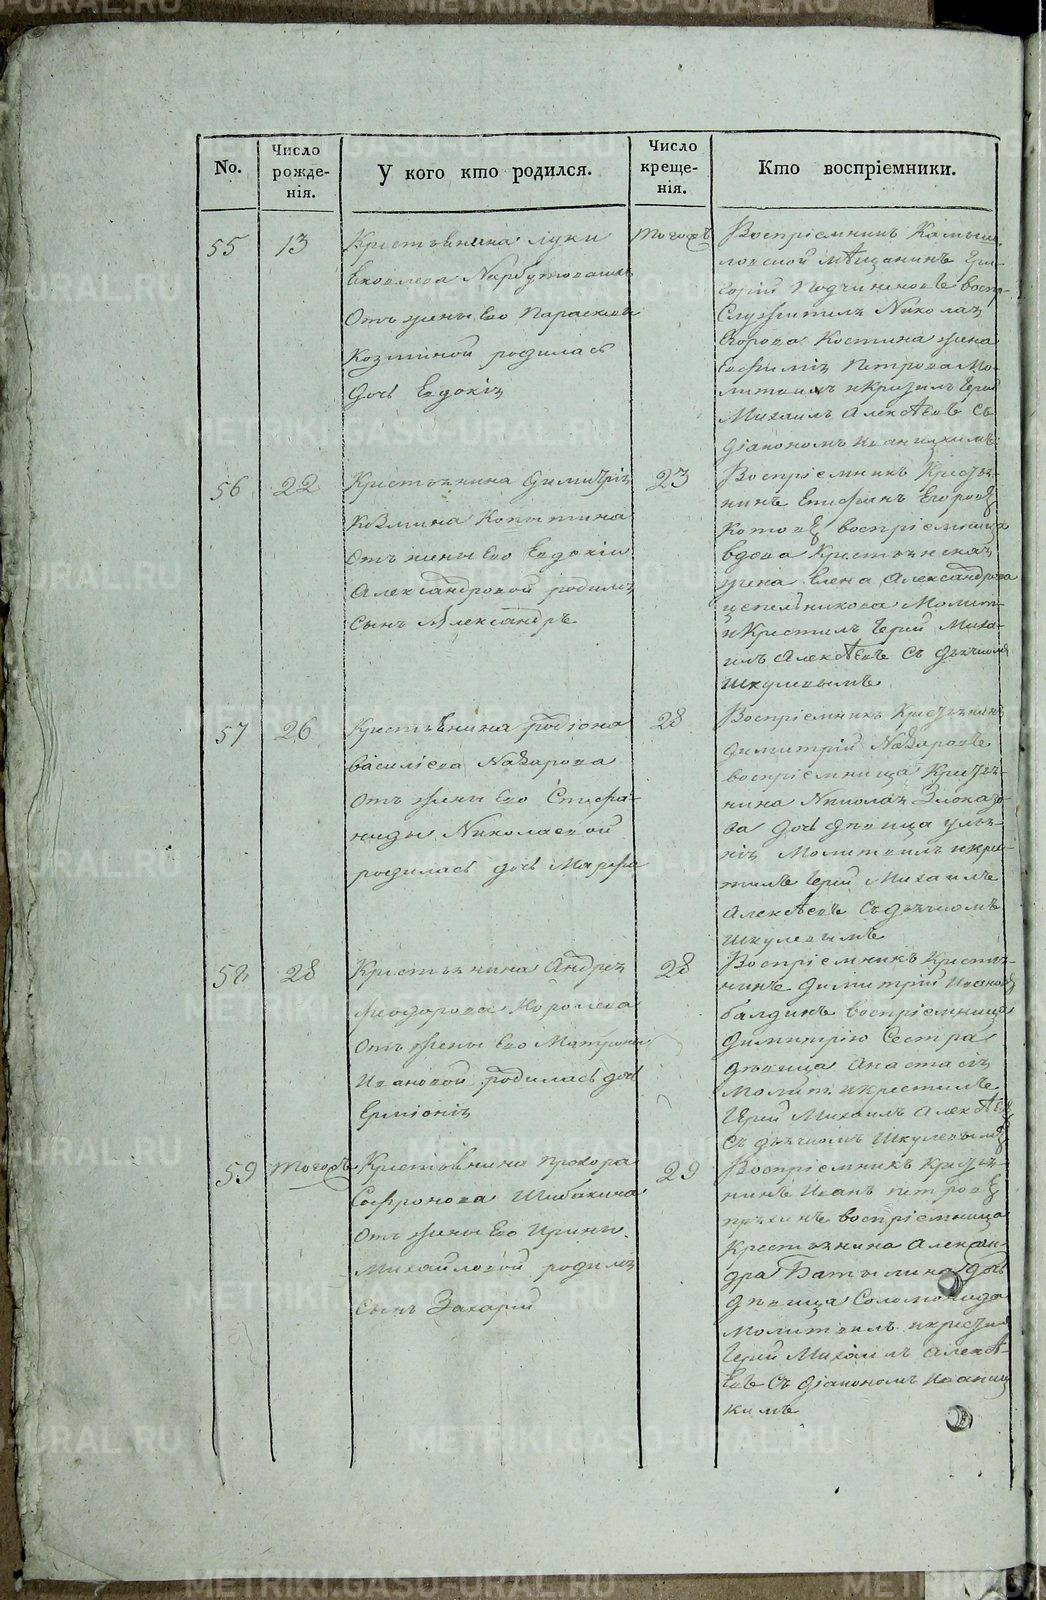 No.
Число
рожде-
нія.
У кого кто родился.
Число
креще-
нія.
Кто воспріемники.
55
13
Крестьянина Луки
Яковлева
Отъ жены Его Параскевы
Козминой родилась
дочь Евдокія
тогожъ
Воспріемникъ Камыш-
ловской мѣщанинъ Гри-
горій
Служителя Николая
Егорова Костина жена
Евфимія Петрова Мо-
литвилъ и Крестилъ Іерей
Михаилъ Алексѣевъ Съ
діакономъ Иваницкимъ
56
22
Крестьянина Димитрія
Козмина Копытина
Отъ жены Его Евдокіи
Александровой родился
Сынъ Александръ
23
Воспріемникъ Крестья-
нинъ Епифанъ Егоровъ
Котовъ воспріемница
вдова Крестьянская
жена Елена Александрова
Молит-
и Крестилъ Іерей Миха-
илъ Алексѣевъ Съ дьячкомъ
Шкулевымъ
57
26
Крестьянина Родіона
Василіева Назарова
Отъ жены Его Степа-
ниды Николаевой
родилась дочь Марфа
28
Воспріемникъ Крестьянинъ
Димитрій Назаровъ
воспріемница Крестья-
нина Николая Злоказо-
ва дочь дѣвица Улья-
нія Молитвилъ и кре-
тилъ Іерей Михаилъ
Алексѣевъ Съ дьячкомъ
Шкулевымъ
58
28
Крестьянина Андрея
Феодорова Королева
Отъ жены Его Матроны
Ивановой родилась дочь
Ерміонія
28
Воспріемникъ Крестья-
нинъ Димитрій Ивановъ
балдинъ воспріемница
Димитрію Сестра
дѣвица Анастасія
Молит. и крестилъ
Іерей Михаилъ Алексѣевъ
Съ дьячкомъ Шкулевымъ
59
тогожъ
Крестьянина Прохора
Софронова Шибакина
Отъ жены Его Ирины
Михайловой родился
Сынъ Захарій
29
Воспріемникъ Крестья-
нинъ Иванъ Петровъ
воспріемница
Крестьянина Алексан-
дра Батылина дочь
дѣвица Соломонида
Молитвилъ и крестилъ
Іерей Михаилъ Алексѣ-
евъ Съ діакономъ Иваниц-
кимъ
METRIKI.GASO-URAL.RU